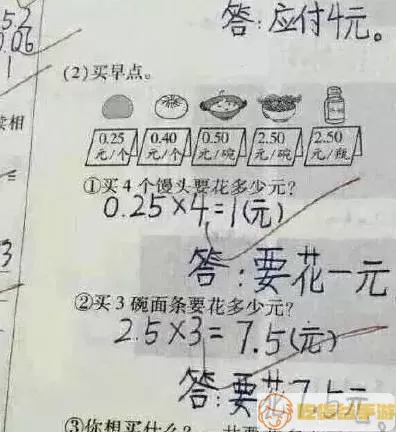 5.2
0.06
1
答:应付4元。
(2)买早点。
读相
0.25 元/个 0.40 元/个 0.50 元/碗 2.50 元/碗 2.50 元/瓶
①买4个馒头要花多少元?
0.25×4=1(元)
3
答:要花一元
②买3碗面条要花多少元?
2.5×3=7.5(元)
答:要花7.5元
吃饭日手游
③你想买什么?